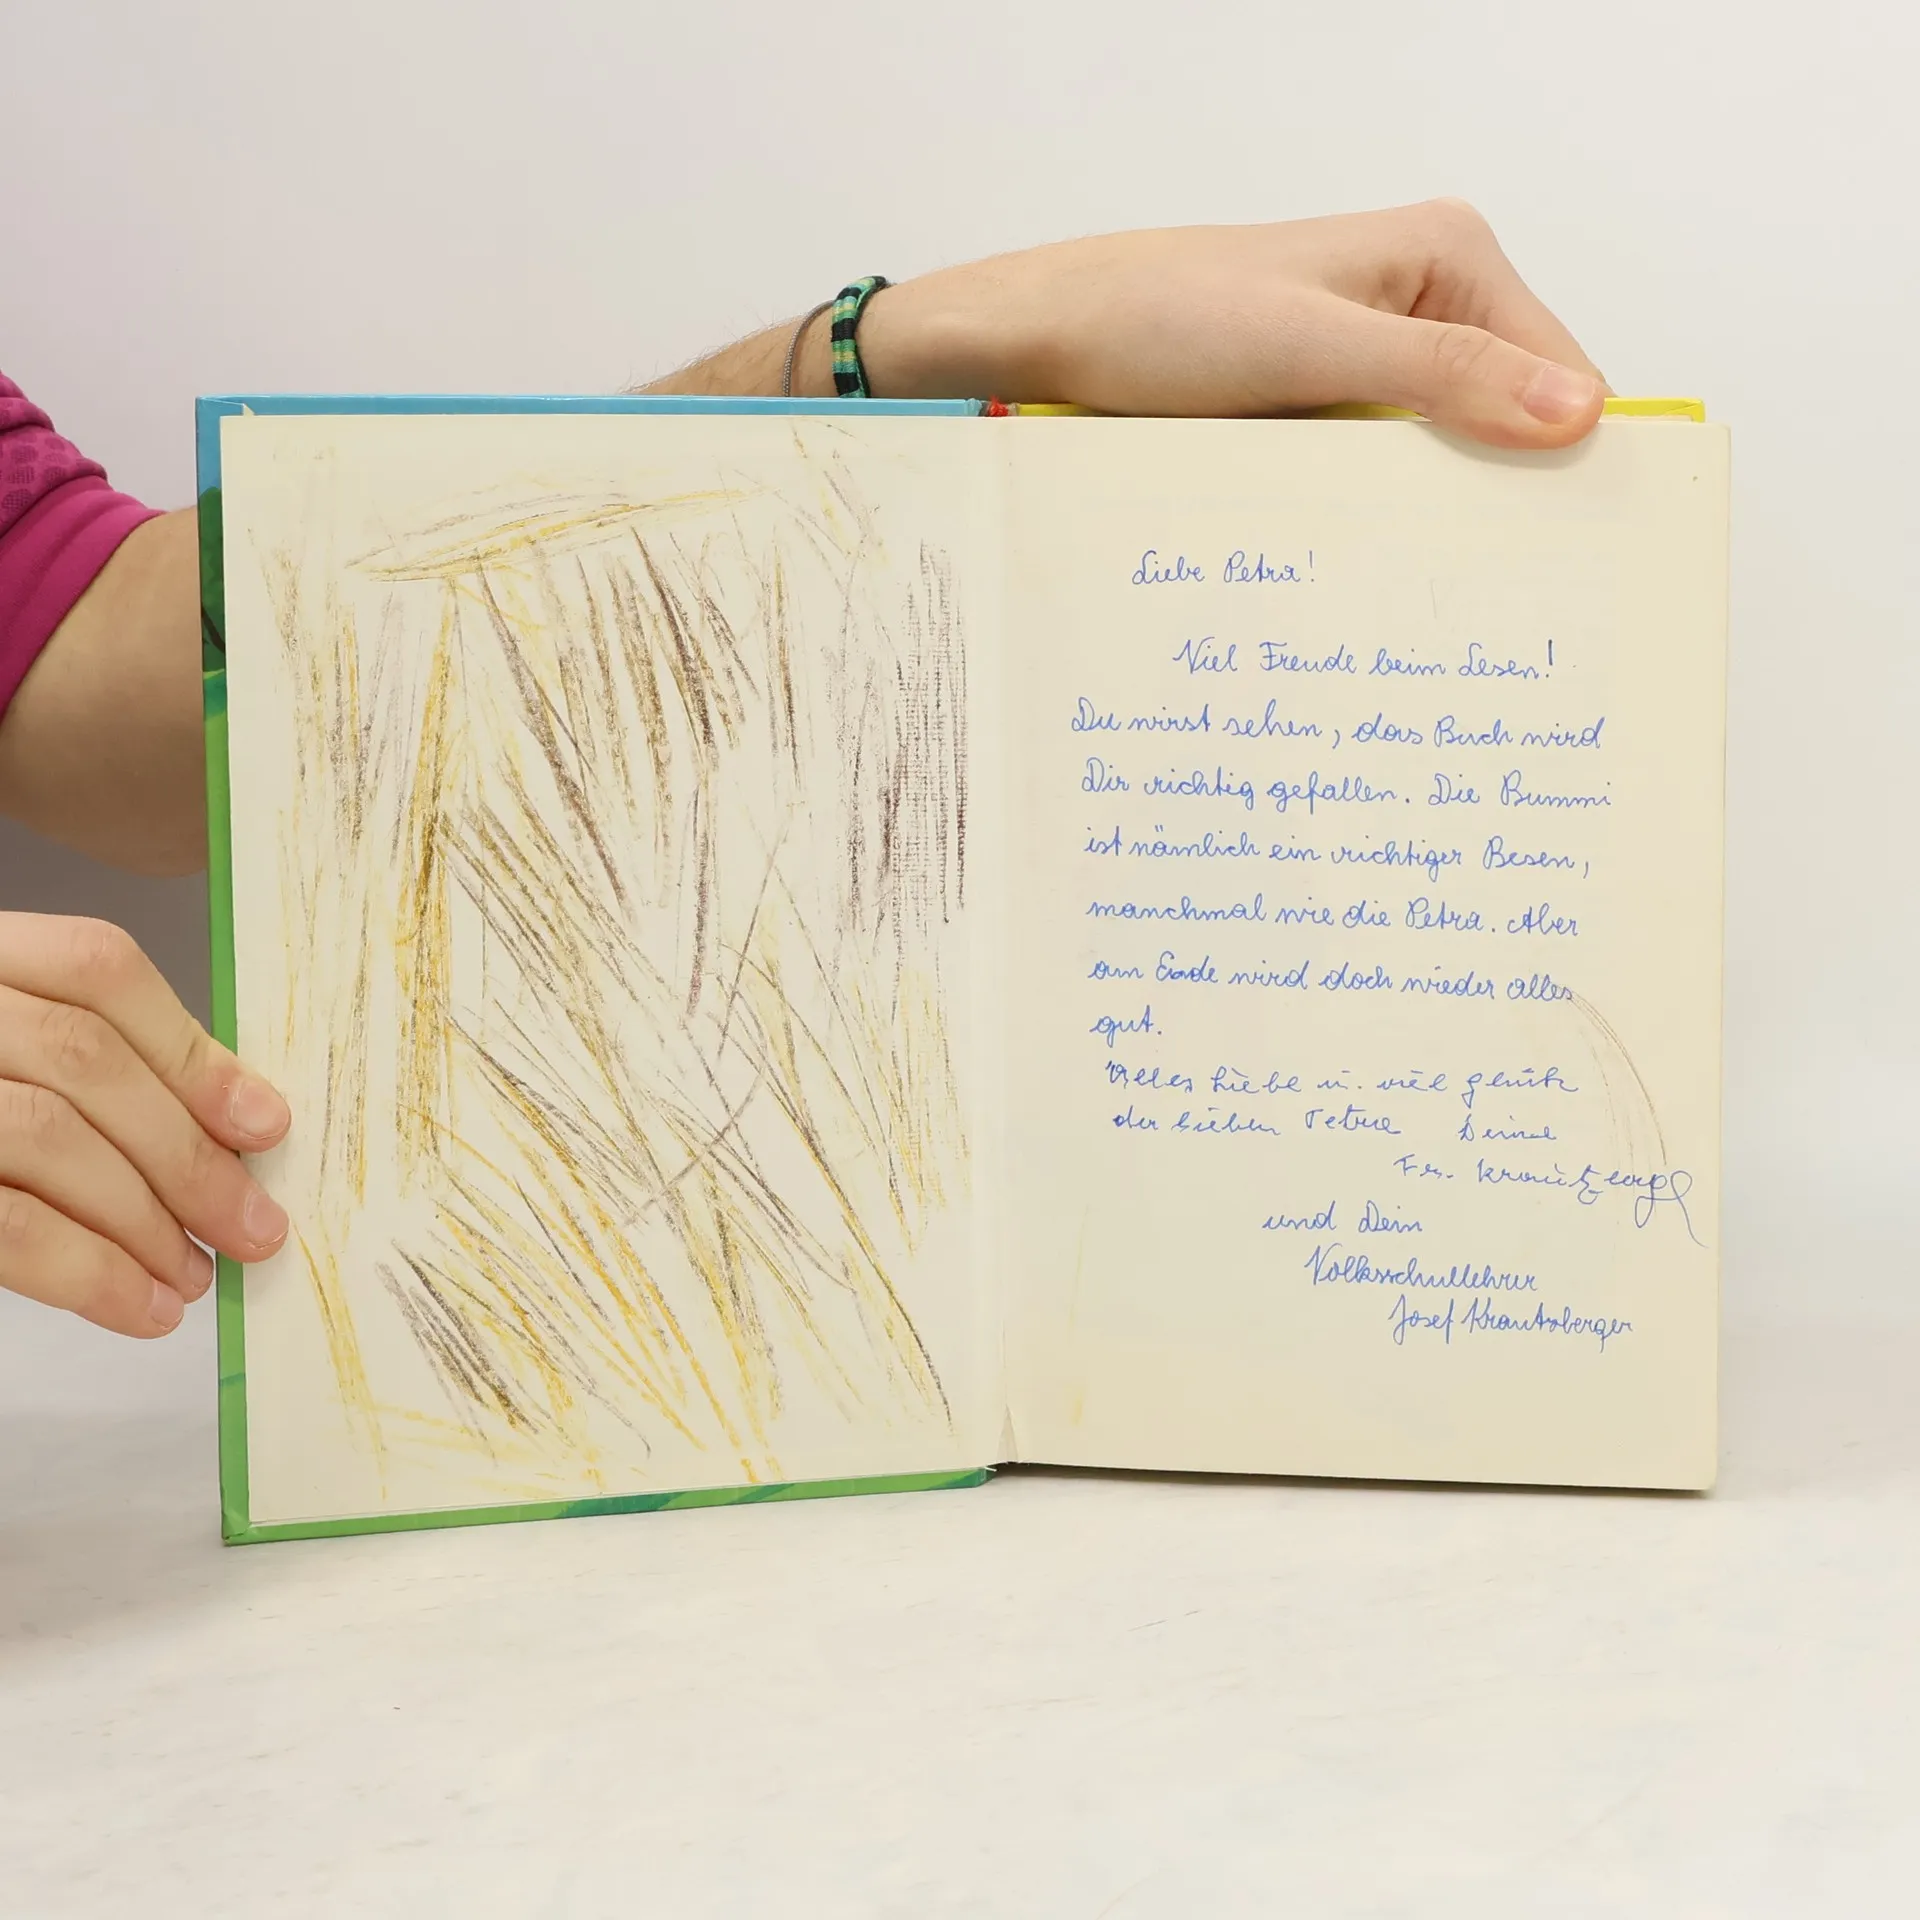 Liebe Petra!
Viel Freude beim Lesen!
Du wirst sehen, das Buch wird
Dir richtig gefallen. Die Bummi
ist nämlich ein richtiger Besen,
manchmal wie die Petra. Aber
am Ende wird doch wieder alles
gut.
Alles Liebe u. viel Glück
der lieben Petra Deine
Fr.
und Dein
Volksschullehrer
Josef Krautsberger